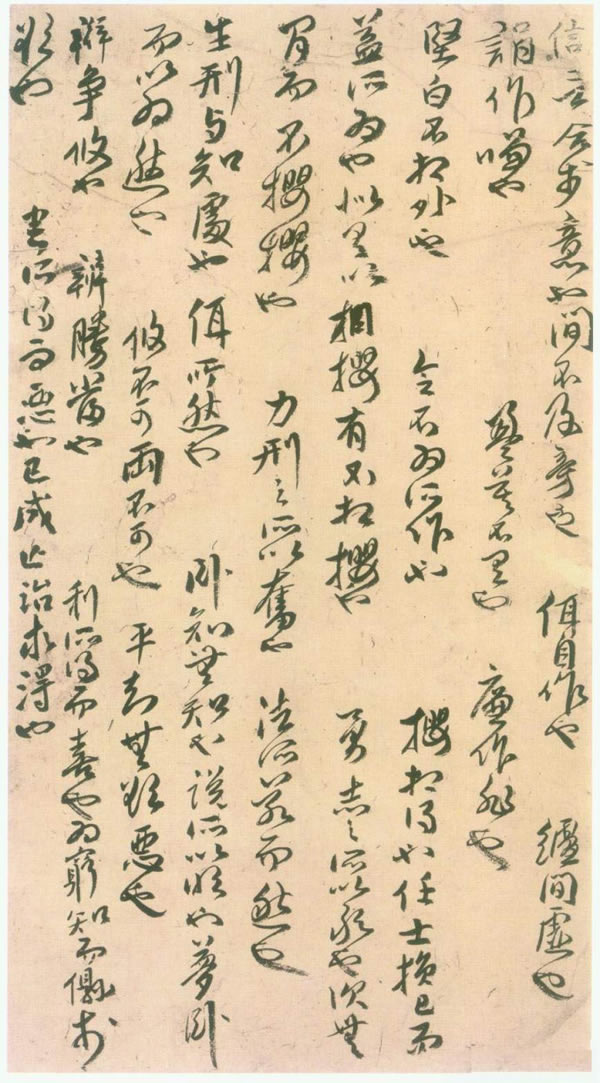 信言合於意也 間不及旁也 佴自作也 纑間虛也
誚作嗛也 盈莫不有也 廉作非也
堅白不相外也 令不為所作也 攖相得也任士損己而
益所為也似有以相攖有不相攖也 勇志之所以敢也次無
間而不攖攖也 力刑之所以奮也 法所若而然也
生刑与知處也 佴所然也 臥知無知也說所以明也夢臥
而以為然也 攸不可兩不可也 平知無欲惡也
辯爭攸也 辯勝當也 利所得而喜也為窮知而儇於
欲也 害所得而惡也已成亡治求得也